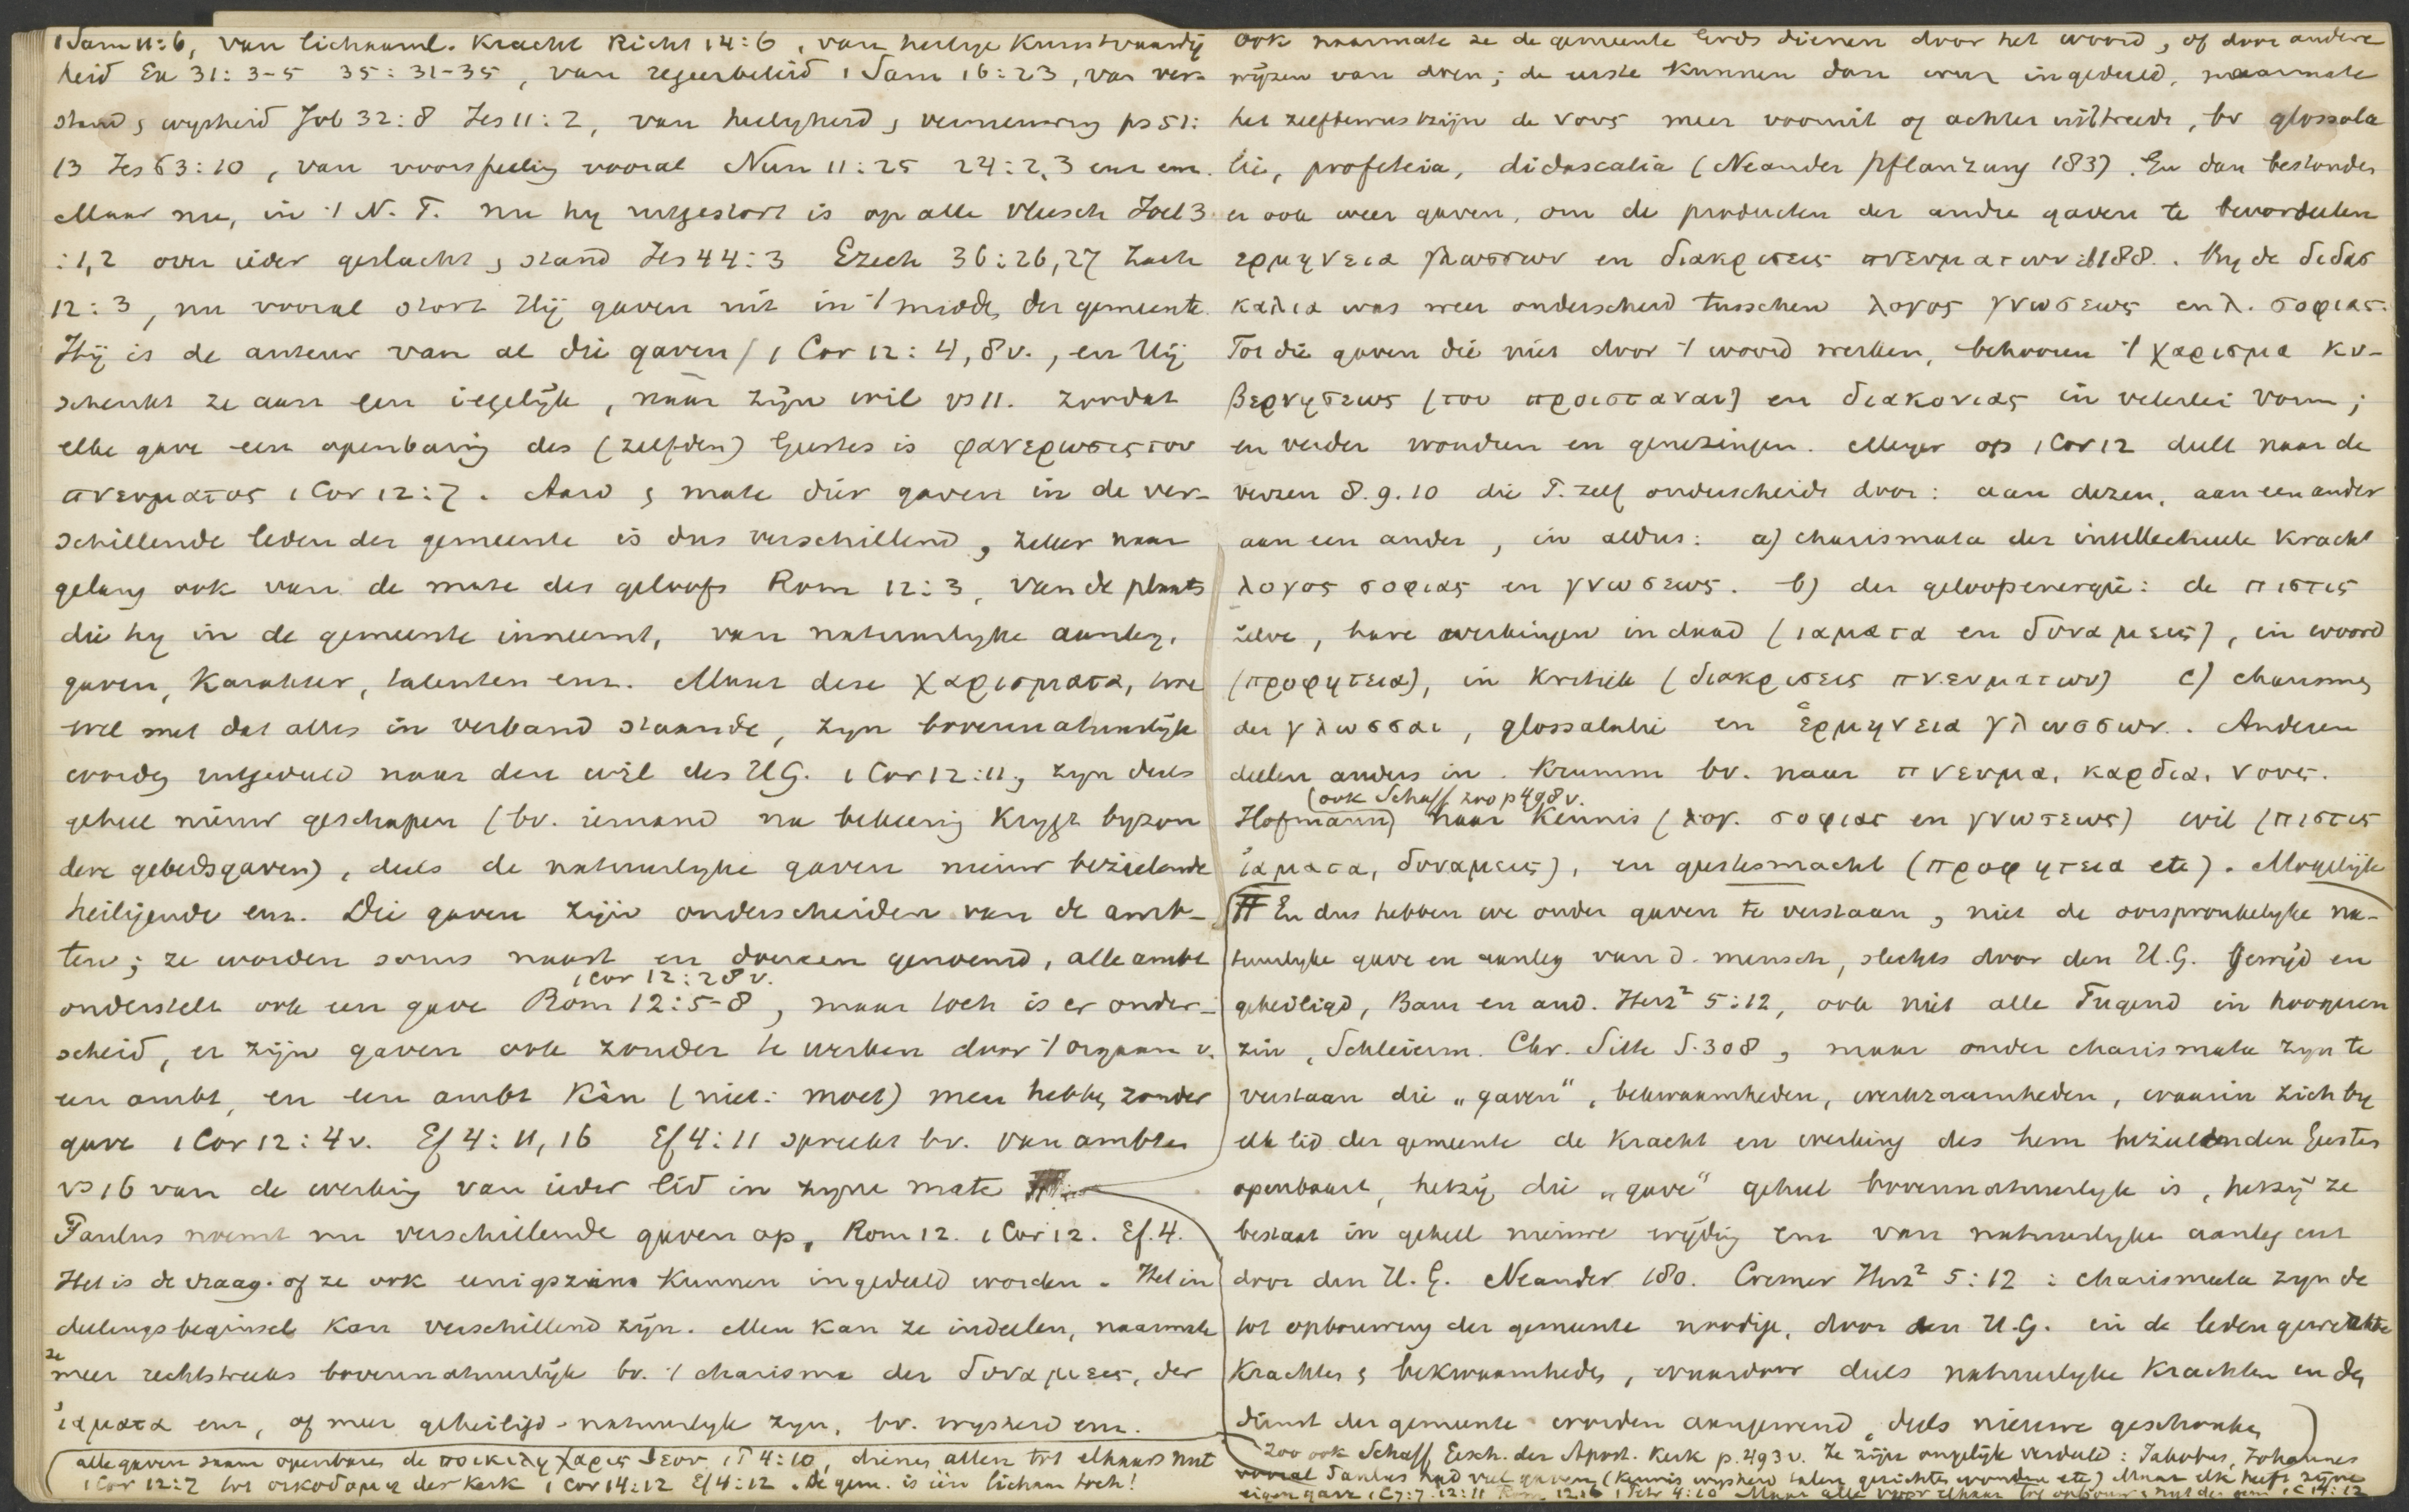 1 Sam 11:6, van lichaaml. Kracht Richt 14:6, van heilige Kunstvaardig
heid Ex 31:3-5 35:31-35, van regeerbeleid 1 Sam 16:23, van ver-
stand, wysheid Job 32:8 Jes 11:2, van heiligheid, vernieuwing ps 51:
13 Jes 63:10, van voorspelling vooral Num 11:25 24:2,3 enz enz.
Maar nu, in 't N.T. nu hy uitgestort is op alle vleesch Joel 3
:1,2 over ieder geslacht, stand Jes 44:3 Ezech 36:26,27 Zach
12:3, nu vooral stort Hij gaven uit in 't midden der gemeente.
Hij is de auteur van al die gaven / 1 Cor 12:4, 8v., en Hij
schenkt ze aan een iegelijk, naar zijn wil vs 11. zoodat
elke gave een openbaring des (zelfden) Geestes is φανερωσις του
πνευματος 1 Cor 12:7. Aard, mate dier gaven in de ver-
schillende leden der gemeente is dus verschillend, zeker naar
gelang ook van de mate des geloofs Rom 12:3, van de plaats
die hy in de gemeente inneemt, van natuurlyke aanleg,
gaven, Karakter, talenten enz. Maar deze χαρισματα, hoe
wel met dat alles in verband staande, zyn bovennatuurlijk
worden uitgedeeld naar den wil des H.G. 1 Cor 12:11, zyn deels
geheel nieuw geschapen (bv. iemand na bekeering Krygt byzon
dere gebedsgaven), deels de natuurlyke gaven nieuw bezielende
heiligende enz. Die gaven zijn onderscheiden van de amb-
ten; ze worden soms naast en dooreen genoemd, alle ambt
1 Cor 12:28v.
onderstelt ook een gave Rom 12:5-8, maar toch is er onder-
scheid, er zijn gaven ook zonder te werken door 't orgaan v.
een ambt, en een ambt Kàn (niet: moet) men hebben zonder
gave 1 Cor 12:4v. Ef 4:11,16 Ef 4:11 spreekt bv. van ambten
vs 16 van de werking van ieder lid in zyne mate
Paulus noemt nu verschillende gaven op, Rom 12. 1 Cor 12. Ef. 4.
Het is de vraag. of ze ook eenigszins Kunnen ingedeeld worden. Het in
deelingsbeginsel Kan verschillend zijn. Men Kan ze indeelen, naarmate
ze
meer rechtstreeks bovennatuurlijk bv. 't charisma der δυναμεις, der
ἰαματα enz, of meer geheiligd-natuurlyk zyn, bv. wysheid enz.
alle gaven saam openbaren de ποικιλη χαρις θεου, 1 P 4:10, dienen allen tot elkaars nut
1 Cor 12:7 tot οικοδομη der Kerk 1 Cor 14:12 Ef 4:12. De gem. is één lichaam toch!
ook naarmate ze de gemeente Gods dienen door het woord, of door andere
wijzen van doen; de eerste Kunnen dan weer ingedeeld, naarmate
het zelfbewustzijn de νους meer vooruit of achter uittreedt, bv glossola
lie, profeteia, didascalia (Neander Pflanzung 183). En dan bestonden
er ook weer gaven, om de producten der andre gaven te beoordeelen
ερμηνεια γλωσσων en διακρισεις πνευματων ib 188. By de διδασ
καλια was weer onderscheid tusschen λογος γνωσεως en λ. σοφιας.
Tot die gaven die niet door 't woord werken, behooren 't χαρισμα κυ-
βερνησεως (του προισταναι) en διακονιας in velerlei vorm;
en verder wonderen en genezingen. Meyer op 1 Cor 12 deelt naar de
verzen 8.9.10 die P. zelf onderscheidt door: aan dezen, aan een ander
aan een ander, in aldus: a) charismata der intellectueele Kracht
λογος σοφιας en γνωσεως. b) der geloofsenergie: de πιστις
zelve, hare werkingen in daad (ιαματα en δυναμεις), in woord
(προφητεια), in Kritiek (διακρισεις πνευματων) c) charisma
der γλωσσαι, glossolalie en ἑρμηνεια γλωσσων. Anderen
deelen anders in. Krumm bv. naar πνευμα, καρδια, νους.
(ook Schaff zoo p 498v.
Hofmann) naar Kennis (λογ. σοφιας en γνωσεως) wil (πιστις
ἰαματα, δυναμεις), en geestesmacht (προφητεια etc). Mogelijk
# En dus hebben we onder gaven te verstaan, niet de oorspronkelyke na-
tuurlyke gave en aanleg van d. mensch, slechts door den H.G. gewijd en
geheiligd, Baur en and. Herz² 5:12, ook niet alle Tugend in hoogeren
zin, Schleierm. Chr. Sitte S. 308, maar onder charismata zyn te
verstaan die „gaven", bekwaamheden, werkzaamheden, waarin zich by
elk lid der gemeente de Kracht en werking des hem bezielenden Geestes
openbaart, hetzij die „gave" geheel bovennatuurlyk is, hetzij ze
bestaat in geheel nieuwe wijding enz van natuurlyke aanleg enz
door den H.G. Neander 180. Cremer Herz² 5:12: charismata zyn de
tot opbouwing der gemeente noodige, door den H.G. in de leden gewrochte
Krachten, bekwaamheden, waardoor deels natuurlyke Krachten in den
dienst der gemeente worden aangewend, deels nieuwe geschonken
zoo ook Schaff, Gesch. der Apost. Kerk p. 493v. Ze zijn ongelijk verdeeld: Jakobus, Johannes
vooral Paulus had veel gaven (Kennis wysheid talen gezichten wonden etc) Maar elk heeft zijne
eigen gave 1 C 7:7. 12:11 Rom 12:6 1 Petr 4:10 Maar alle voor elkaar tot opbouw, nut der gem 1 C 14:12